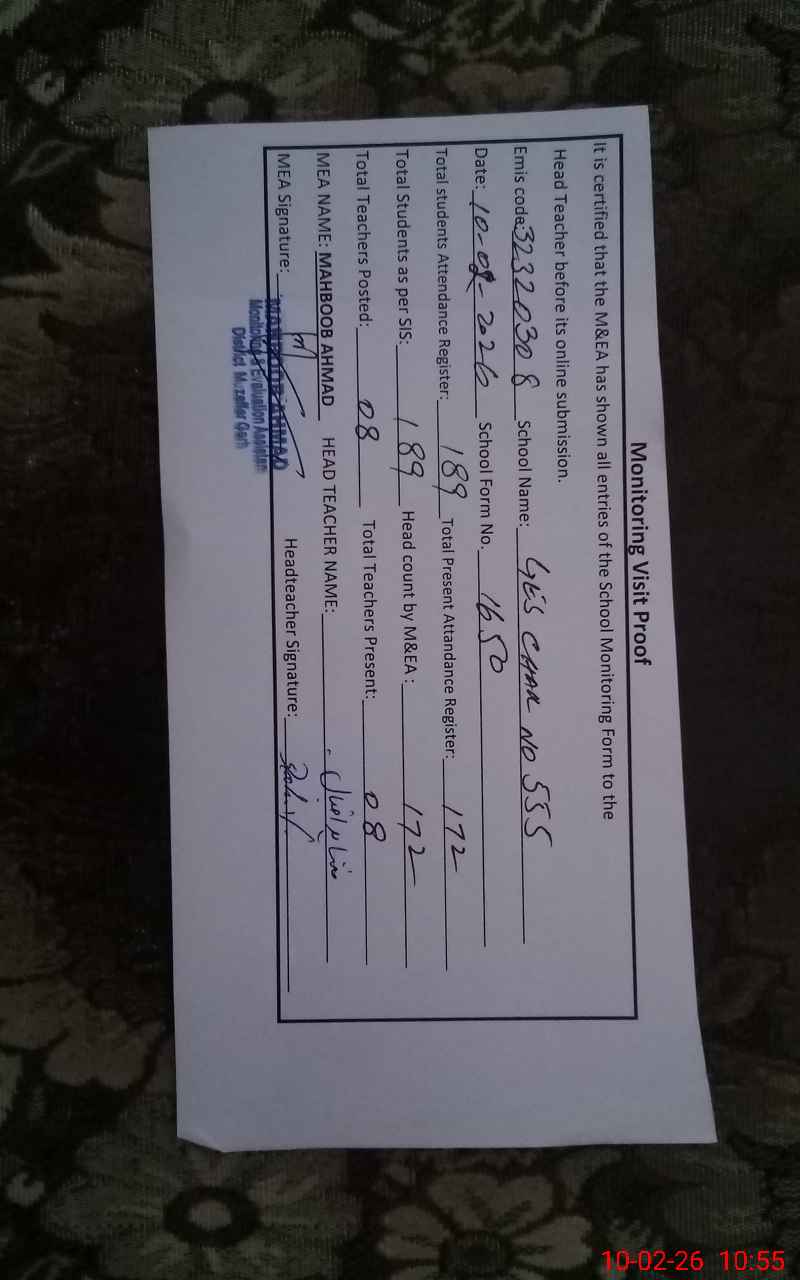 Monitoring Visit Proof
It is certified that the M&EA has shown all entries of the School Monitoring Form to the
Head Teacher before its online submission.
Emis code: 32320308 School Name: GES CHAK NO 555
Date: 10-02-2026 School Form No. 1650
Total students Attendance Register: 189 Total Present Attandance Register: 172
Total Students as per SIS: 189 Head count by M&EA : 172
Total Teachers Posted: 08 Total Teachers Present: 08
MEA NAME: MAHBOOB AHMAD HEAD TEACHER NAME:
MEA Signature: Headteacher Signature:
MAHBOOB AHMAD
Monitoring & Evaluation Assistant
District Muzaffar Garh
10-02-26 10:55